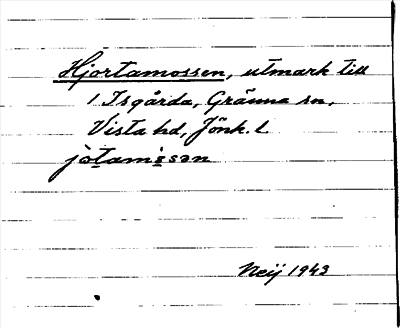 Hjortamossen, utmark till
1 Isgårda, Gränna sn,
Vista hd, Jönk. l.
Neij 1943